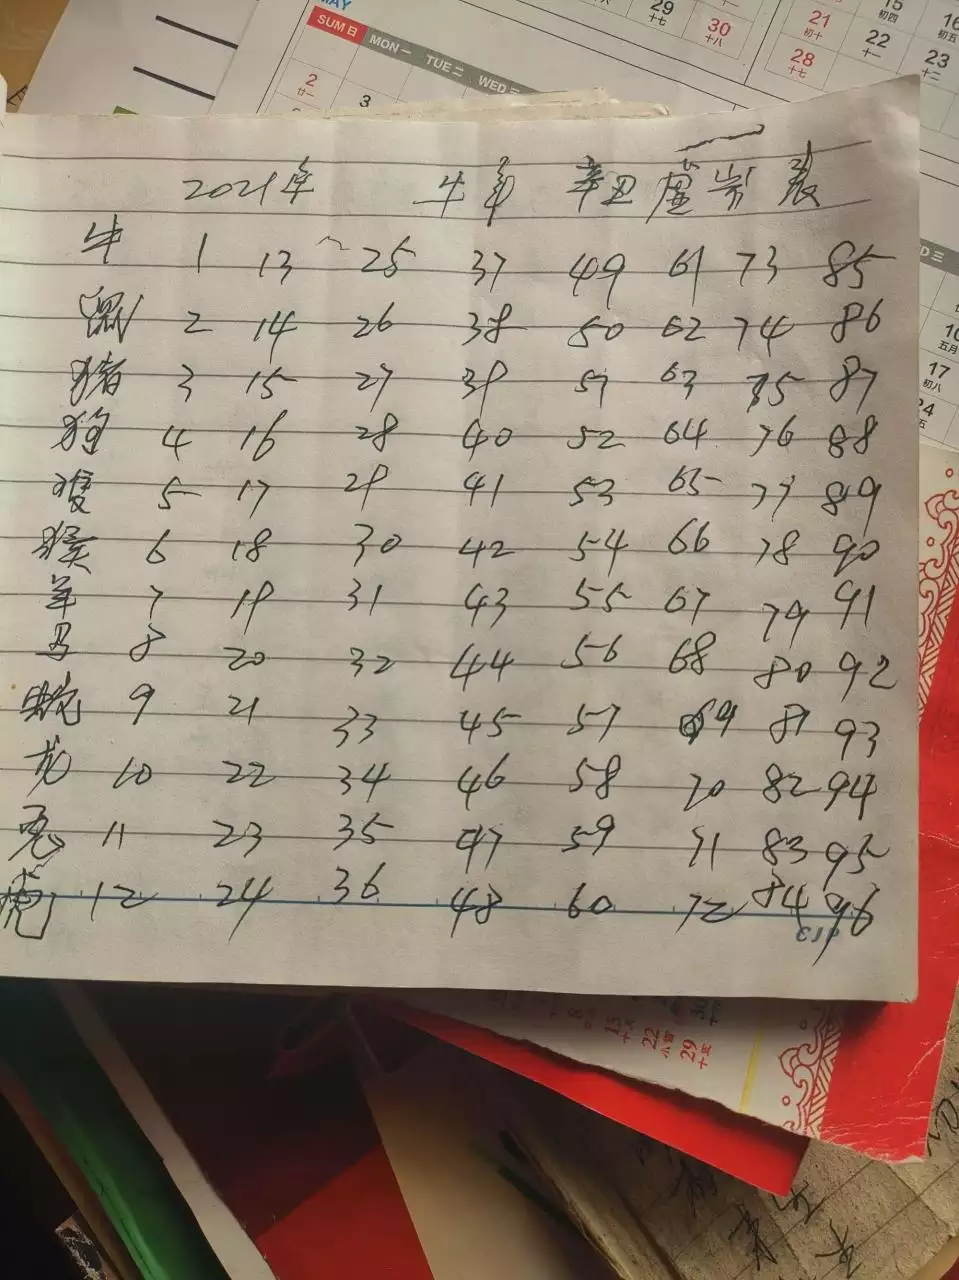 MAY
SUM 日 MON 一 TUE 二 WED 三
2 3
廿一
29
十七
30
十八
15
初四
16
初五
21
初十
22
十一
23
十二
28
十七
2021年 牛年 辛丑 虚岁 表
牛 1 13 25 37 49 61 73 85
鼠 2 14 26 38 50 62 74 86
猪 3 15 27 39 51 63 75 87
狗 4 16 28 40 52 64 76 88
5 17 29 41 53 65 77 89
猴 6 18 30 42 54 66 78 90
羊 7 19 31 43 55 67 79 91
马 8 20 32 44 56 68 80 92
蛇 9 21 33 45 57 69 81 93
龙 10 22 34 46 58 70 82 94
兔 11 23 35 47 59 71 83 95
虎 12 24 36 48 60 72 84 96
17
初八
15
十六
22
小雪
29
十五